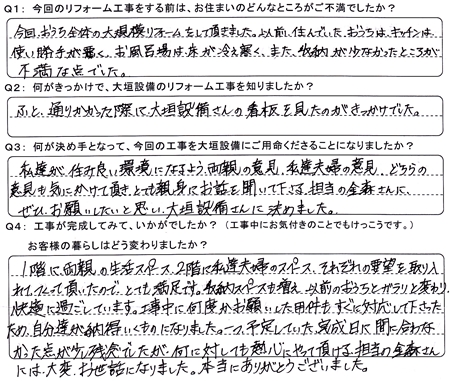 Q1: 今回のリフォーム工事をする前は、お住まいのどんなところがご不満でしたか？
今回、おうち全体の大規模リフォームをして頂きました。以前、住んでいたおうちは、キッチンは
使い勝手が悪く、お風呂場は床が冷え寒く、また、収納が少なかったところが
不満な点でした。
Q2: 何がきっかけで、大垣設備のリフォーム工事を知りましたか？
ふと、通りかかった際に大垣設備さんの看板を見たのがきっかけでした。
Q3: 何が決め手となって、今回の工事を大垣設備にご用命くださることになりましたか？
私達が、住み良い環境になるよう、両親の意見、私達夫婦の意見、どちらの
意見も気にかけて頂き、とても親身にお話を聞いて下さる、担当の金森さんに、
ぜひ、お願いしたいと思い、大垣設備さんに決めました。
Q4: 工事が完成してみて、いかがでしたか？（工事中にお気付きのことでもけっこうです。）
お客様の暮らしはどう変わりましたか？
1階に両親の生活スペース、2階に私達夫婦のスペース、それぞれの要望を取り入
れてつくって頂いたので、とても満足です。収納スペースも増え、以前のおうちとガラリと変わり、
快適に過ごしています。工事中に何度かお願いした用件もすぐに対応して下さった
ため、自分達が納得いくものになりました。一つ、予定していた完成日に間に合わな
かった点が少し残念でしたが、何に対しても熱心にやって頂ける、担当の金森さん
には、大変、お世話になりました。本当にありがとうございました。